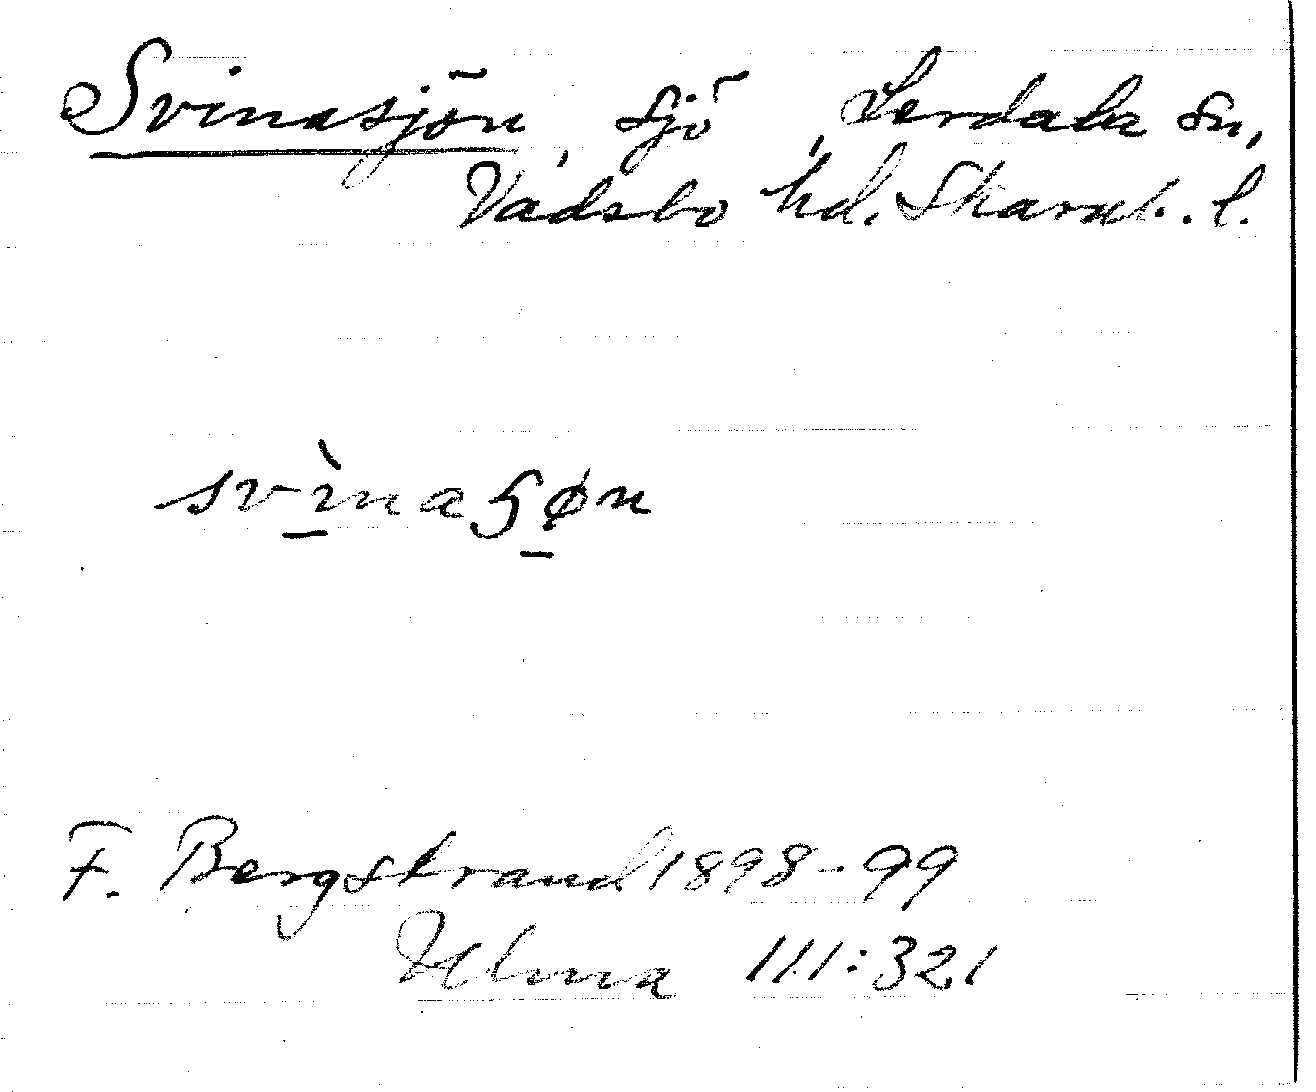 Svinasjön, sjö, Lerdala sn,
Vadsbo hd. Skarab. l.
svìnaʂøn
F. Bergstrand 1898-99
Ulma 111:321